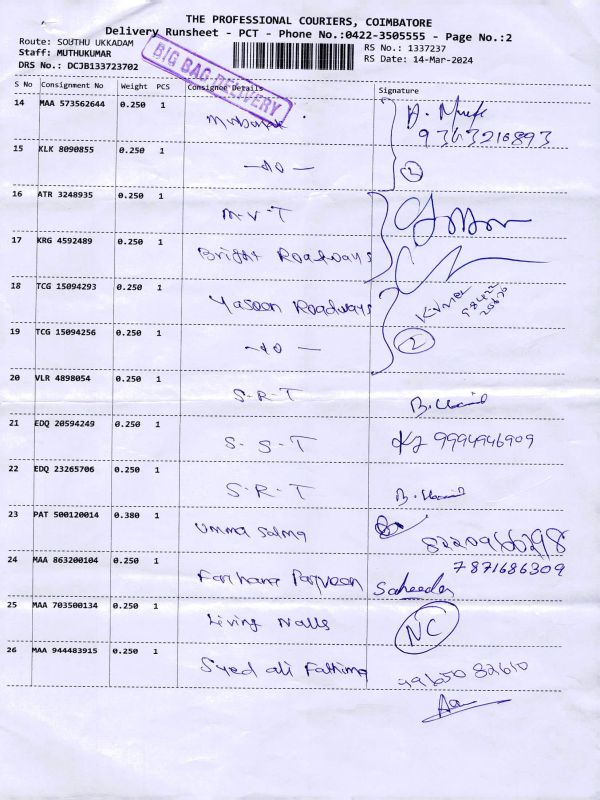 THE PROFESSIONAL COURIERS, COIMBATORE
Delivery Runsheet - PCT - Phone No.:0422-3505555 - Page No.:2
Route: SOUTHU UKKADAM
Staff: MUTHUKUMAR
DRS No.: DCJB133723702
RS No.: 1337237
RS Date: 14-Mar-2024
BIG BAG DELIVERY
S No Consignment No Weight PCS Consignee Details Signature
14 MAA 573562644 0.250 1 Mubarak
9363216893
15 KLK 8090855 0.250 1 -do- 2
16 ATR 3248935 0.250 1 M-V-T
17 KRG 4592489 0.250 1 Bright Roadways
18 TCG 15094293 0.250 1 Yasoon Roadways
19 TCG 15094256 0.250 1 -do- 2
20 VLR 4898054 0.250 1 S-R-T
21 EDQ 20594249 0.250 1 S-S-T 9994946909
22 EDQ 23265706 0.250 1 S-R-T
23 PAT 500120014 0.380 1 Umma Salma 8220966298
24 MAA 863200104 0.250 1 Farihana Parveen 7871686309
25 MAA 703500134 0.250 1 Living Walls NC
26 MAA 944483915 0.250 1 Syed ali Fathima 99650 82610